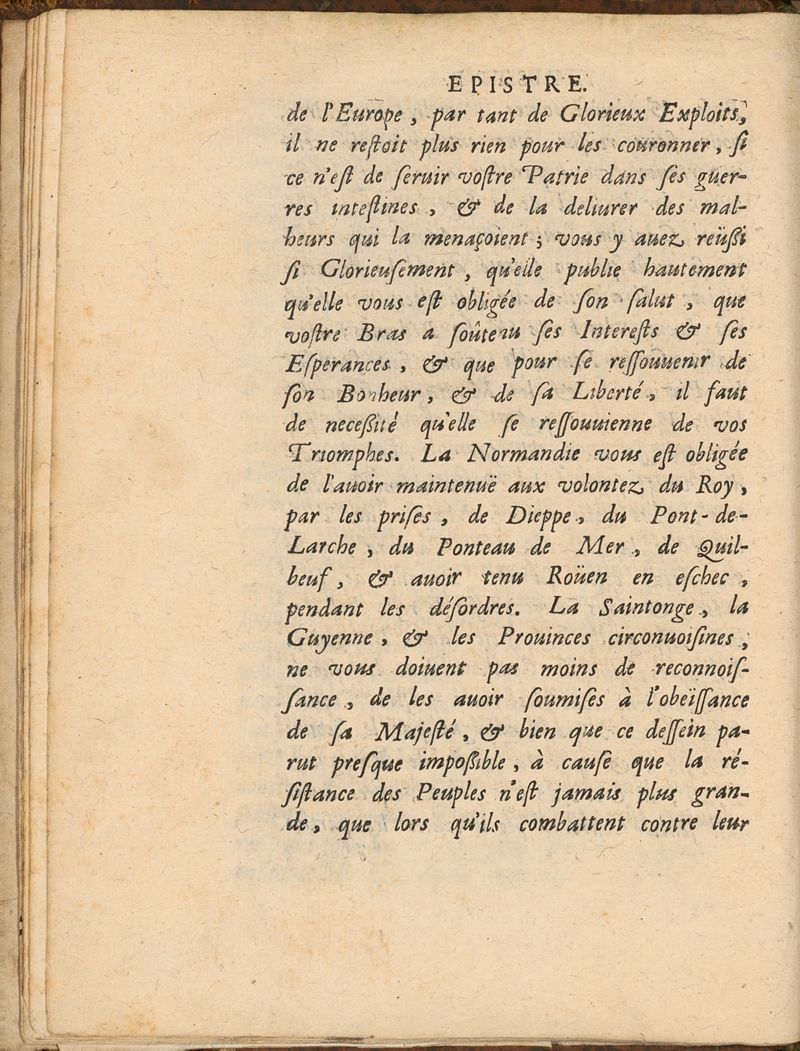 EPISTRE.
de l'Europe, par tant de Glorieux Exploits,
il ne reſtoit plus rien pour les couronner, ſi
ce n'eſt de ſeruir voſtre Patrie dans ſes guer-
res inteſtines, & de la deliurer des mal-
heurs qui la menaçoient; vous y auez reüſſi
ſi Glorieuſement, qu'elle publie hautement
qu'elle vous eſt obligée de ſon ſalut, que
voſtre Bras a ſoûtenu ſes Intereſts & ſes
Eſperances, & que pour ſe reſſouuenir de
ſon Bonheur, & de ſa Liberté, il faut
de neceſſité qu'elle ſe reſſouuienne de vos
Triomphes. La Normandie vous eſt obligée
de l'auoir maintenuë aux volontez du Roy,
par les priſes, de Dieppe, du Pont-de-
Larche, du Ponteau de Mer, de Quil-
beuf, & auoir tenu Roüen en eſchec,
pendant les déſordres. La Saintonge, la
Guyenne, & les Prouinces circonuoiſines,
ne vous doiuent pas moins de reconnoiſ-
ſance, de les auoir ſoumiſes à l'obeïſſance
de ſa Majeſté, & bien que ce deſſein pa-
rut preſque impoſſible, à cauſe que la ré-
ſiſtance des Peuples n'eſt jamais plus gran-
de, que lors qu'ils combattent contre leur